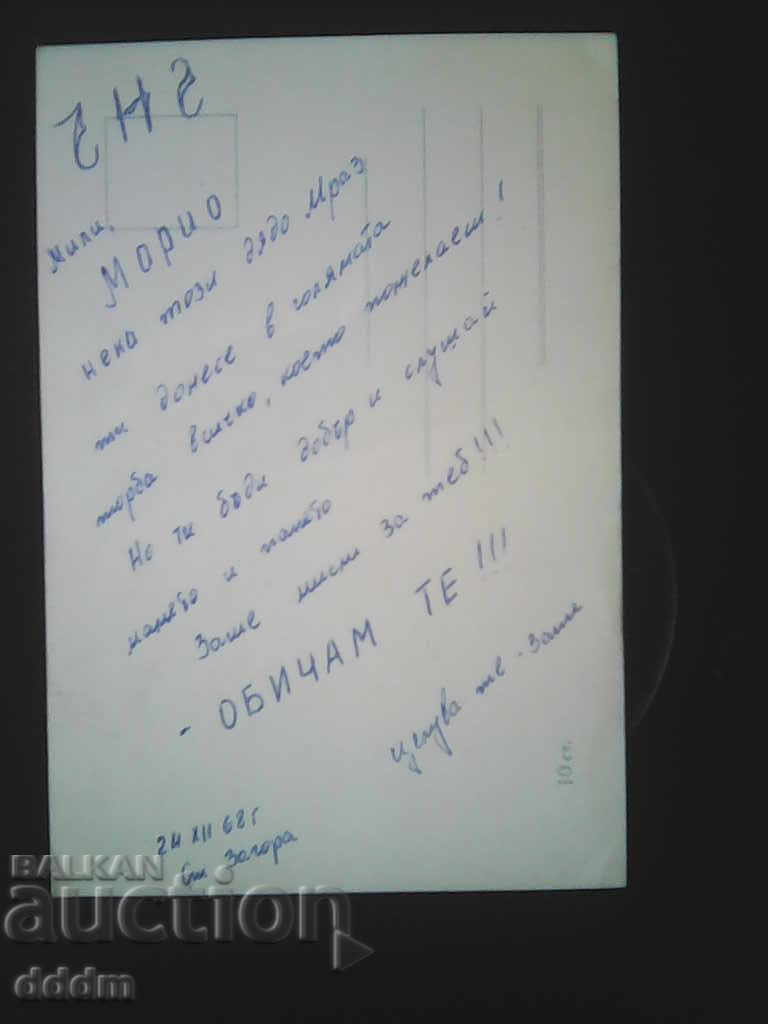 ЧНГ
Мили,
Морио
нека този дядо Мраз
ти донесе в голямата
торба всичко, което пожелаеш!
Но ти бъди добър и слушай
мамето и татето
мисли за теб!!!
- ОБИЧАМ ТЕ!!!
целува те -
24 XII 62 г
Ст Загора
10 ст.
BALKAN
auction
dddm